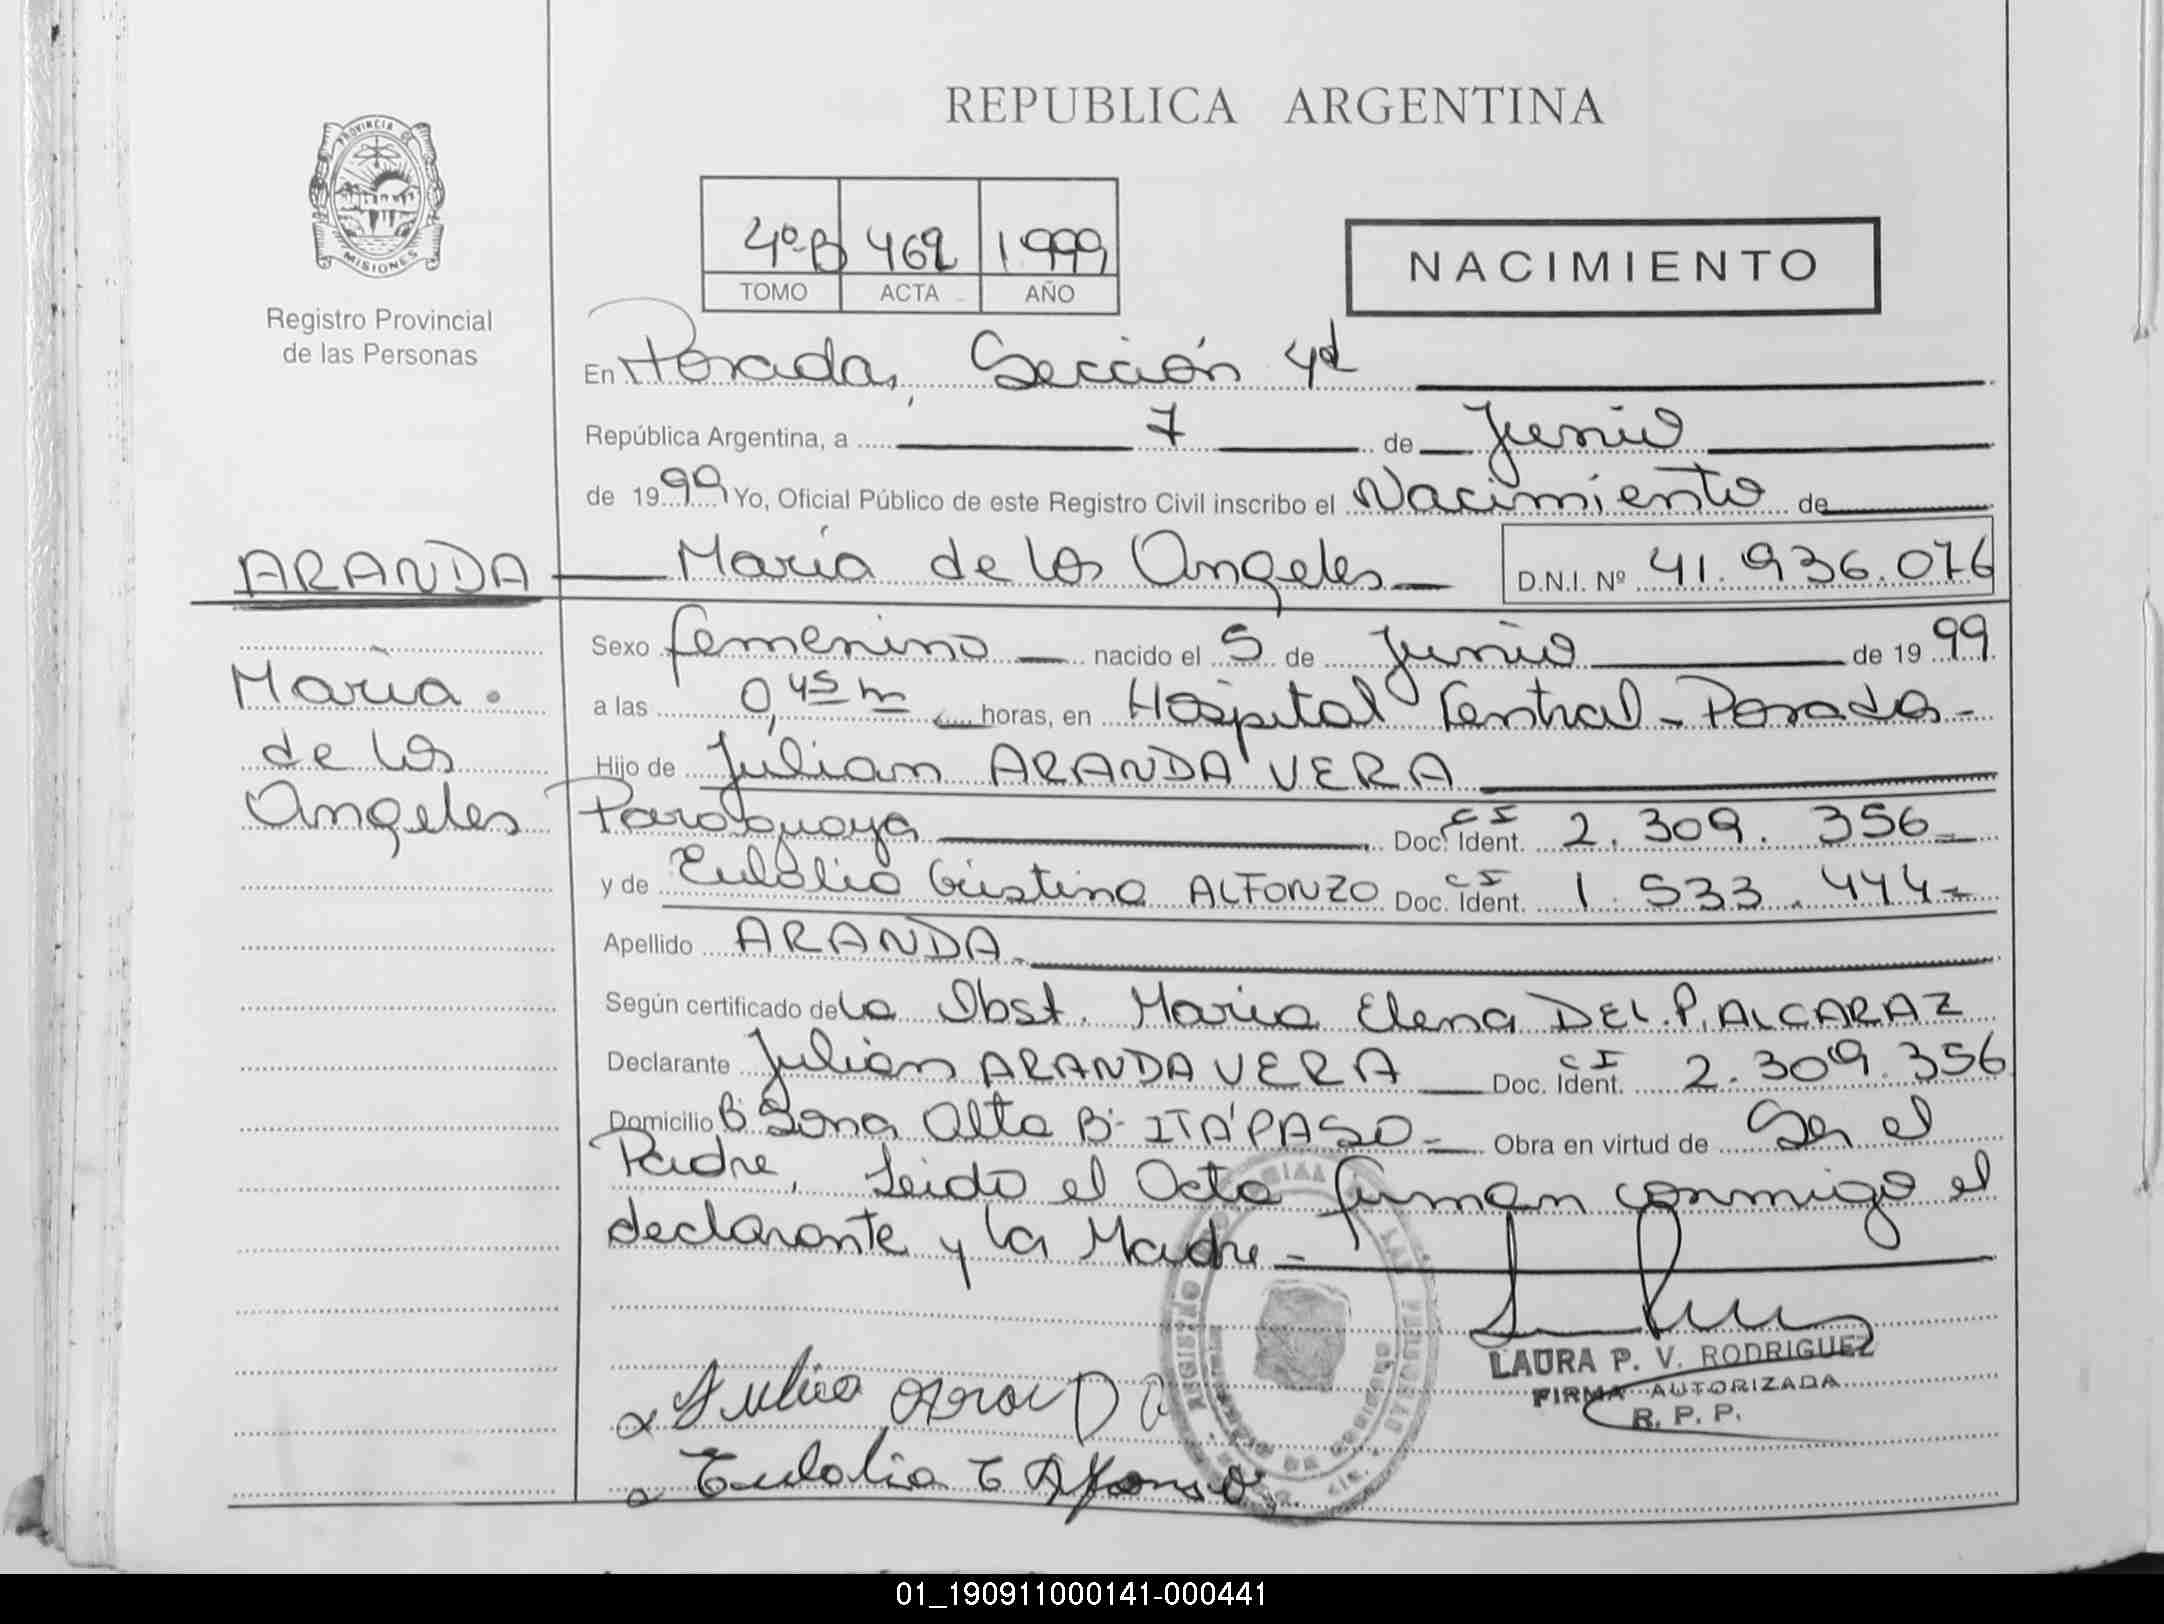 REPUBLICA ARGENTINA
PROVINCIA DE
MISIONES
Registro Provincial
de las Personas
4º B 462 1999
TOMO ACTA AÑO
NACIMIENTO
En Posadas, Sección 4ª
República Argentina, a 7 de Junio
de 1999 Yo, Oficial Público de este Registro Civil inscribo el Nacimiento de
ARANDA María de los Angeles D.N.I. Nº 41.936.076
Sexo femenino nacido el 5 de Junio de 1999
María
a las 0,45 m horas, en Hospital Central - Posadas -
de los
Hijo de Julian ARANDA VERA
Angeles
Paraguaya C I Doc. Ident. 2.309.356
y de Eulalia Cristina ALFONZO C I Doc. Ident. 1.533.444
Apellido ARANDA
Según certificado de la Obst. Maria Elena DEL P. ALCARAZ
Declarante Julian ARANDA VERA C I Doc. Ident. 2.309.356
Domicilio Bº Zona Alta Bº ITÁ PASO Obra en virtud de Ser el
Padre, Leido el Acta firman conmigo el
declarante y la Madre
LAURA P. V. RODRIGUEZ
FIRMA AUTORIZADA
R. P. P.
Eulalia C Alfonso
01_190911000141-000441